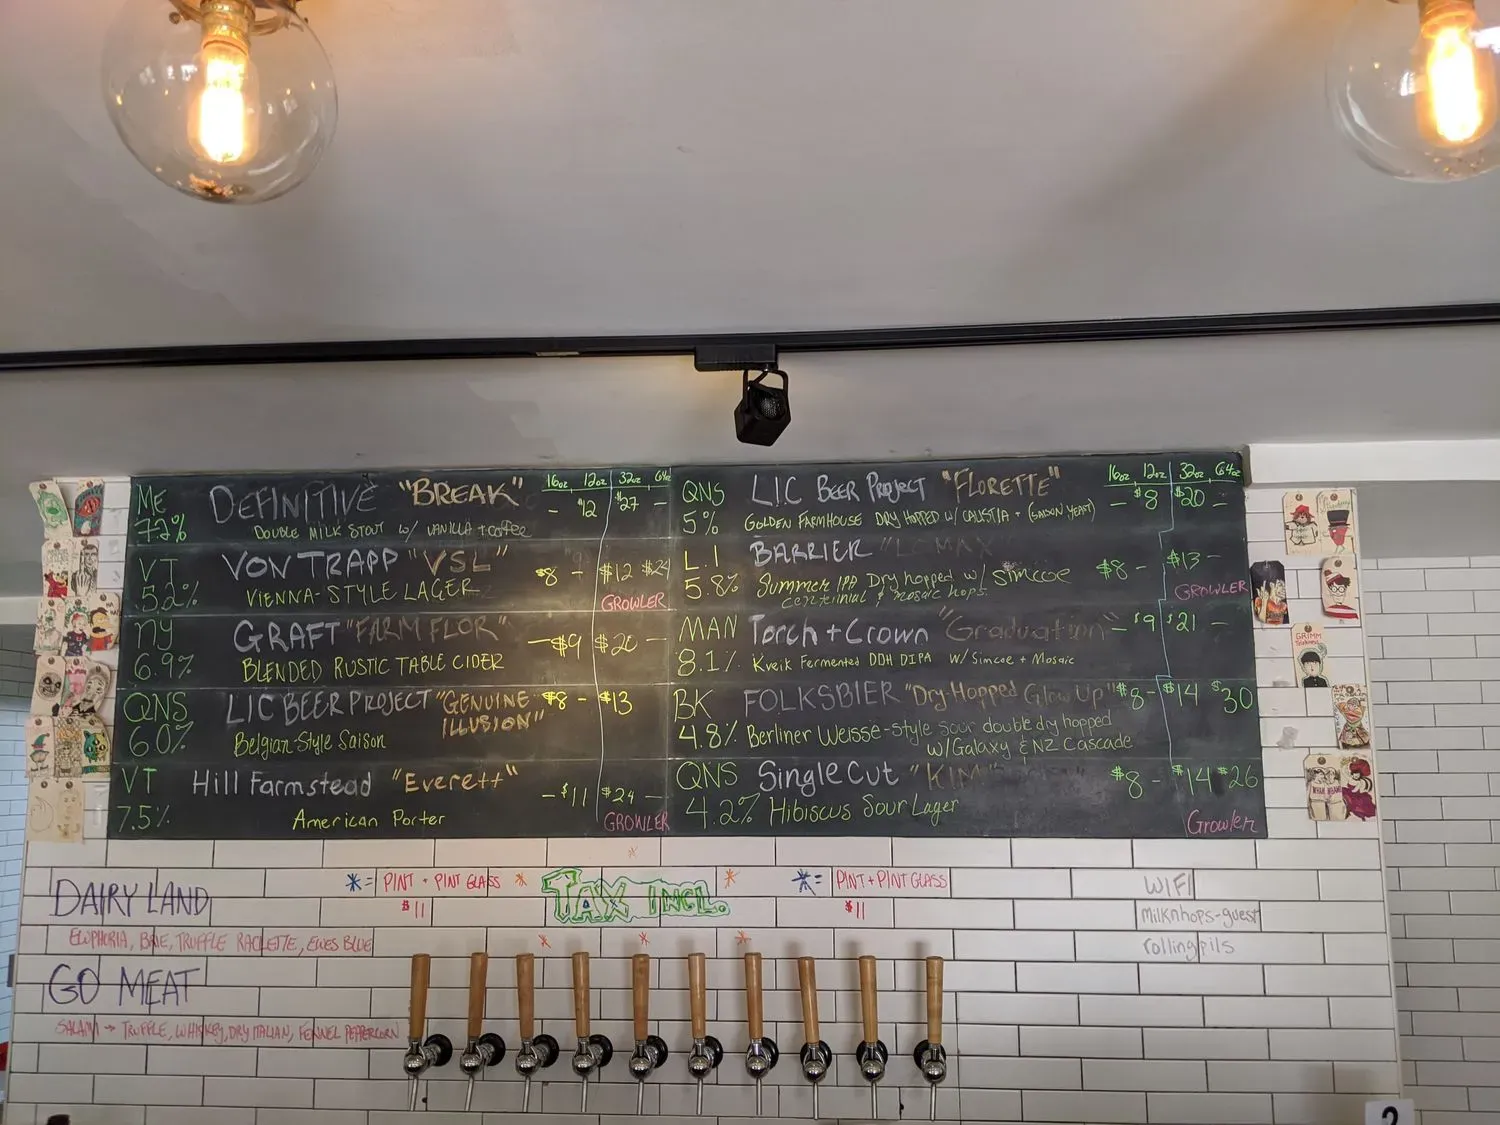 16oz 12oz 32oz 64oz
ME DEFINITIVE "BREAK" - $12 $27 -
7.2% DOUBLE MILK STOUT W/ VANILLA + coffee
VT VON TRAPP "VSL" $8 - $12 $24
5.2% VIENNA-STYLE LAGER GROWLER
NY GRAFT "FARM FLOR" - $9 $20 -
6.9% BLENDED RUSTIC TABLE CIDER
QNS LIC BEER PROJECT "GENUINE $8 - $13
ILLUSION"
6.0% Belgian-Style Saison
VT Hill Farmstead "Everett" - $11 $24 -
7.5% American Porter GROWLER
16oz 12oz 32oz 64oz
QNS LIC BEER PROJECT "FLORETTE" - $8 $20 -
5% GOLDEN FARMHOUSE DRY HOPPED W/ CALISTIA + (SAISON YEAST)
L.I BARRIER $8 - $13 -
5.8% Summer IPA Dry hopped w/ Simcoe GROWLER
centennial & mosaic hops.
MAN Torch + Crown "Graduation" - $9 $21 -
8.1% Kveik Fermented DDH DIPA W/ Simcoe + Mosaic
BK FOLKSBIER "Dry-Hopped Glow Up" $8 - $14 $30
4.8% Berliner Weisse-Style Sour double dry hopped
w/ Galaxy & NZ Cascade
QNS SingleCut "KIM" $8 - $14 $26
4.2% Hibiscus Sour Lager Growler
DAIRY LAND
EUPHORIA, BRIE, TRUFFLE RACLETTE, EWES BLUE
GO MEAT
SALAMI → TRUFFLE, WHISKEY, DRY ITALIAN, FENNEL PEPPERCORN
* = PINT + PINT GLASS
$11
TAX INCL.
* = PINT + PINT GLASS
$11
WIFI
milknhops-guest
rollingpils
GRIMM
2